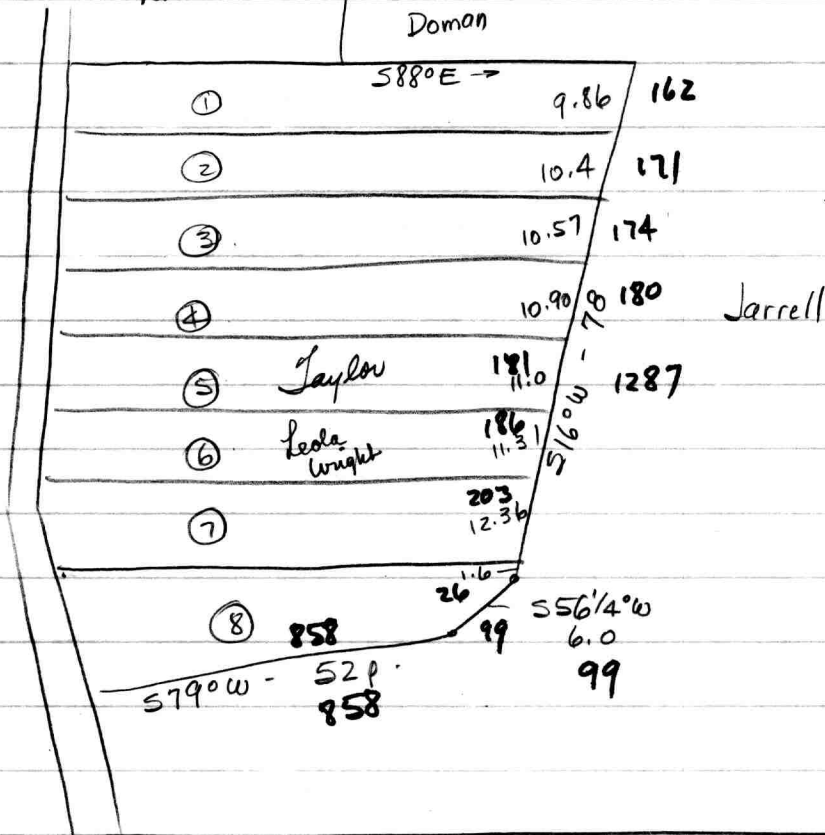 Doman
S88°E →
① 9.86 162
② 10.4 171
③ 10.57 174
④ 10.90 180
Jarrell
S16°W - 78
⑤ Taylor 181
11.0
1287
⑥ Leola 186
Wright 11.31
⑦ 203
12.36
1.6
26
⑧ 858
S56¼°W
99 6.0
99
S79°W - 52 p.
858